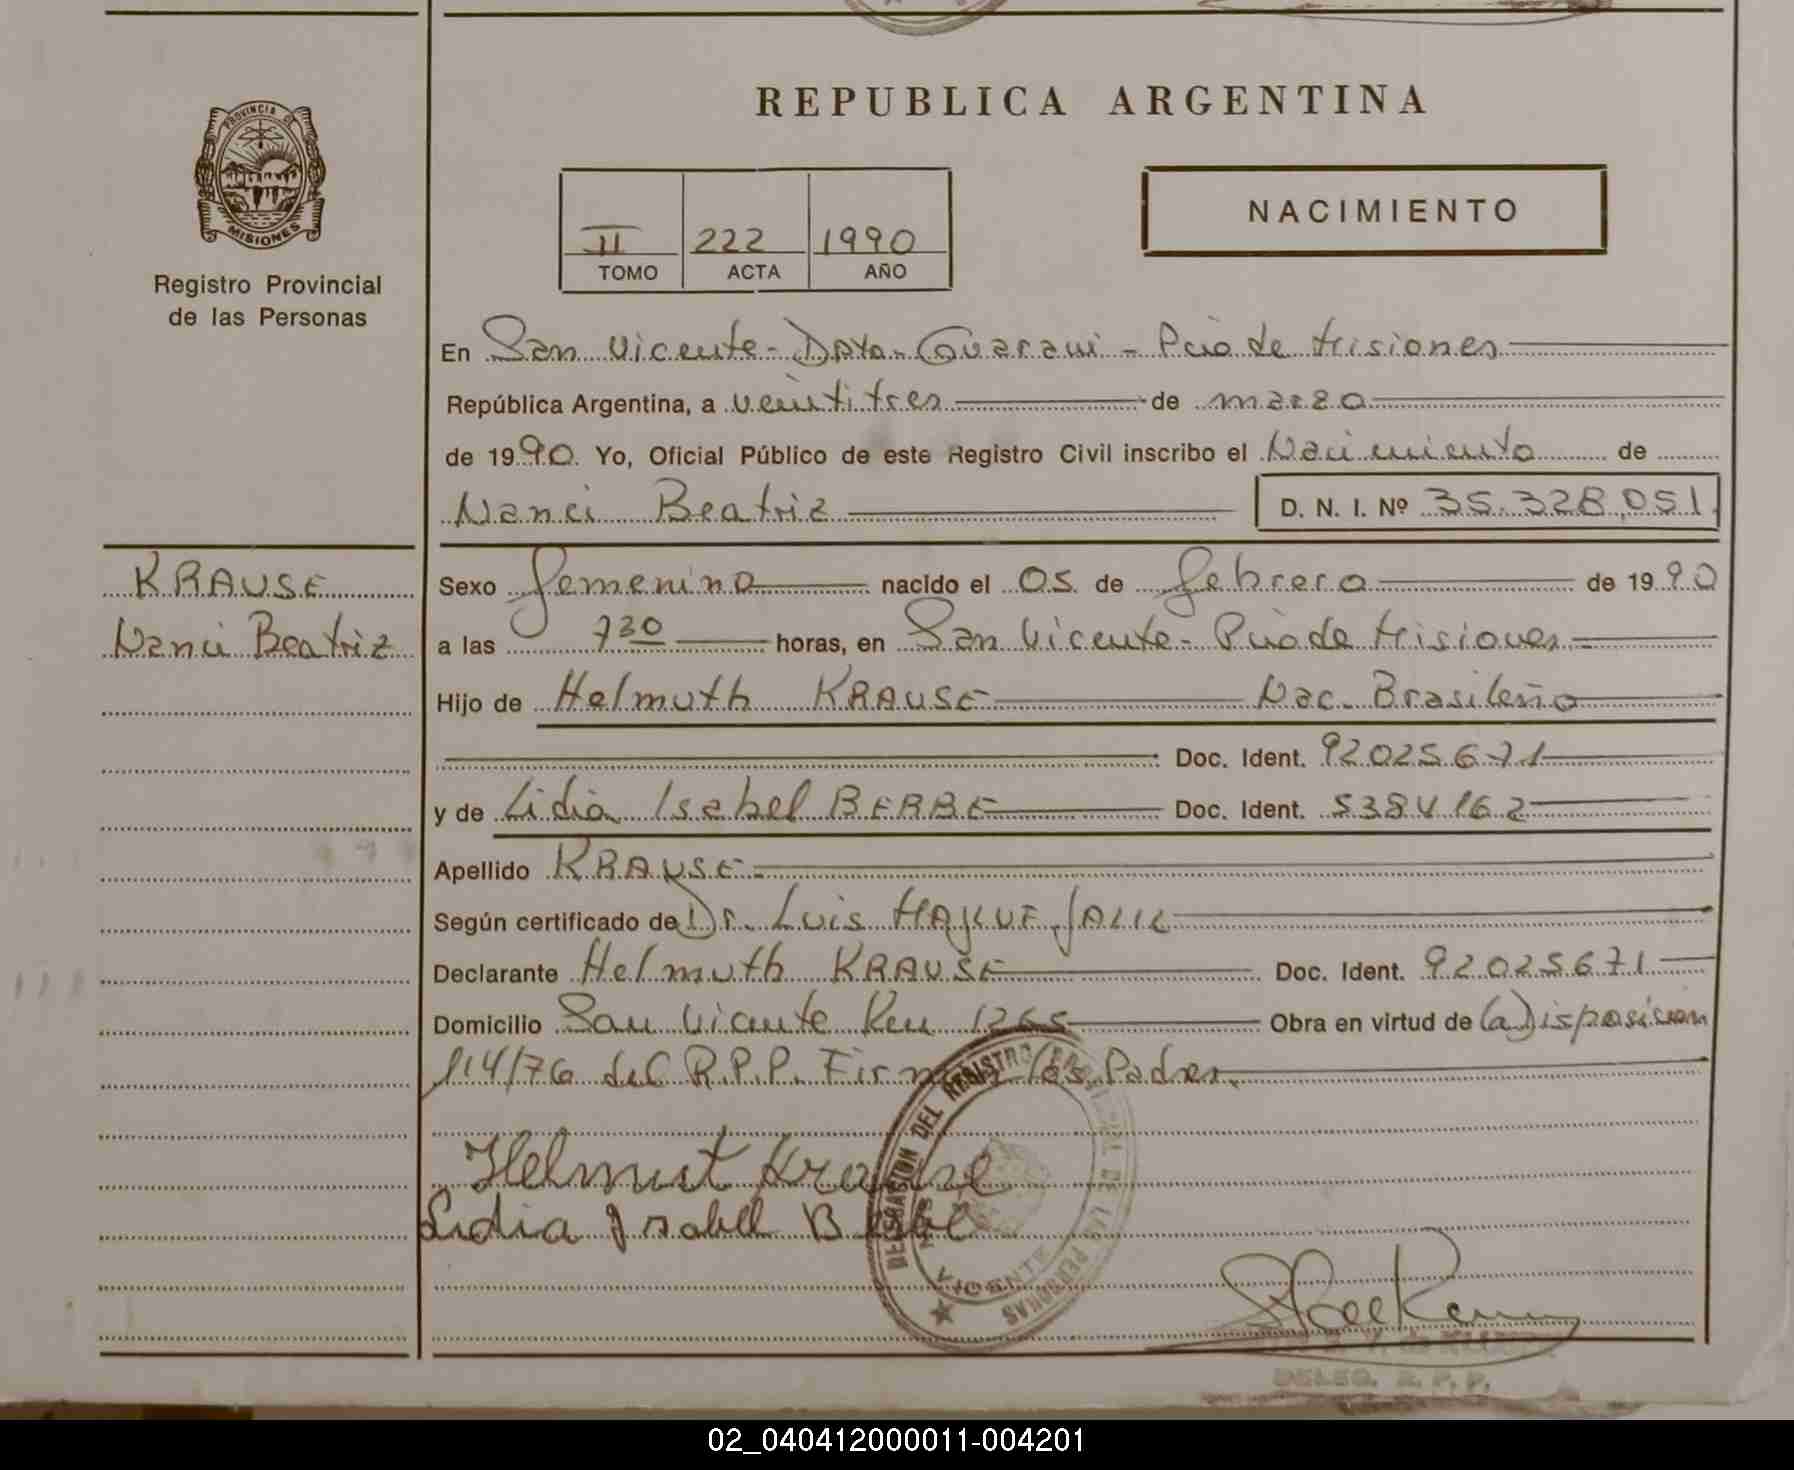 PROVINCIA DE
MISIONES
Registro Provincial
de las Personas
REPUBLICA ARGENTINA
II 222 1990
TOMO ACTA AÑO
NACIMIENTO
En San Vicente - Dpto. Guarani - Pcia de Misiones
República Argentina, a veintitres de marzo
de 1990. Yo, Oficial Público de este Registro Civil inscribo el Nacimiento de
Nanci Beatriz D. N. I. Nº 35.328.051
KRAUSE
Nanci Beatriz
Sexo femenino nacido el 05 de febrero de 1990
a las 7 30 horas, en San Vicente - Pcia de Misiones
Hijo de Helmuth KRAUSE Nac. Brasileño
Doc. Ident. 92025671
y de Lidia Isabel BERBE Doc. Ident. 5384162
Apellido KRAUSE
Según certificado de Dr. Luis
Declarante Helmuth KRAUSE Doc. Ident. 92025671
Domicilio San Vicente Km 1265 Obra en virtud de (a) Disposición
114/76 del R.P.P. Firman los Padres.
Helmut Krause
Lidia Isabel Berbe
DELEGACION DEL REGISTRO PROVINCIAL DE LAS PERSONAS
VICENTE
DELEG. R. P. P.
02_040412000011-004201